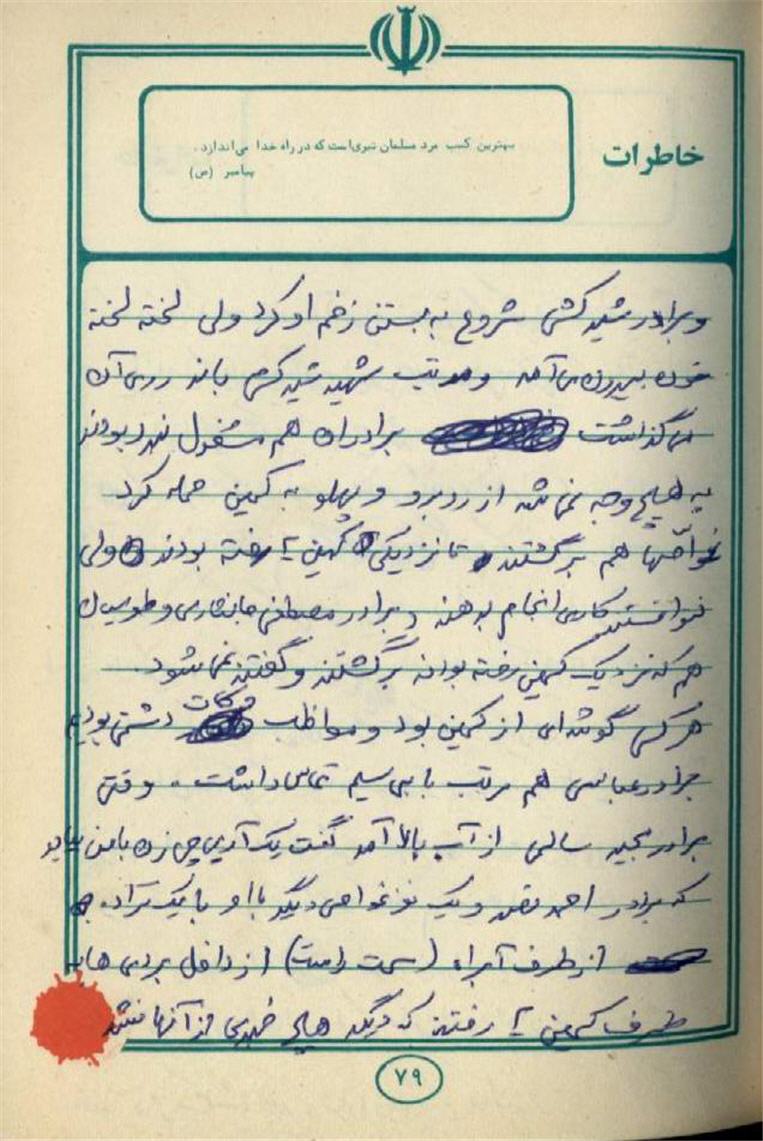 خاطرات
بهترین کسب مرد مسلمان تیری است که در راه خدا می‌اندازد.
پیامبر (ص)
و برادر شروع به بستن زخم او کرد ولی لخته لخته
خون بیرون می‌آمد و مرتب شهید باند روی آن
می گذاشت برادران هم مشغول نبرد بودند
به هیچ وجه نمی شد از روبرو و پهلو به کمین حمله کرد
غواصها هم برگشتند تا نزدیکی کمین رفته بودند ولی
نتوانستند کاری انجام بدهند و برادر مصطفی و
هم که نزدیک کمین رفته بودند برگشتند و گفتند نمی شود.
هر کس گوشه‌ای از کمین بود و مواظب حرکات دشمن بودیم
برادر عباسی هم مرتب با بی سیم تماس داشت. وقتی
برادر مجید سالمی از آب بالا آمد گفت یک آرپی جی زن با من بیاید
که برادر احمد و یک نفر غواص دیگر با او با یک
از طرف آبراه (سمت راست) از داخل بردی ها به
طرف کمین رفتند که دیگر هیچ خبری از آنها نشد
۷۹